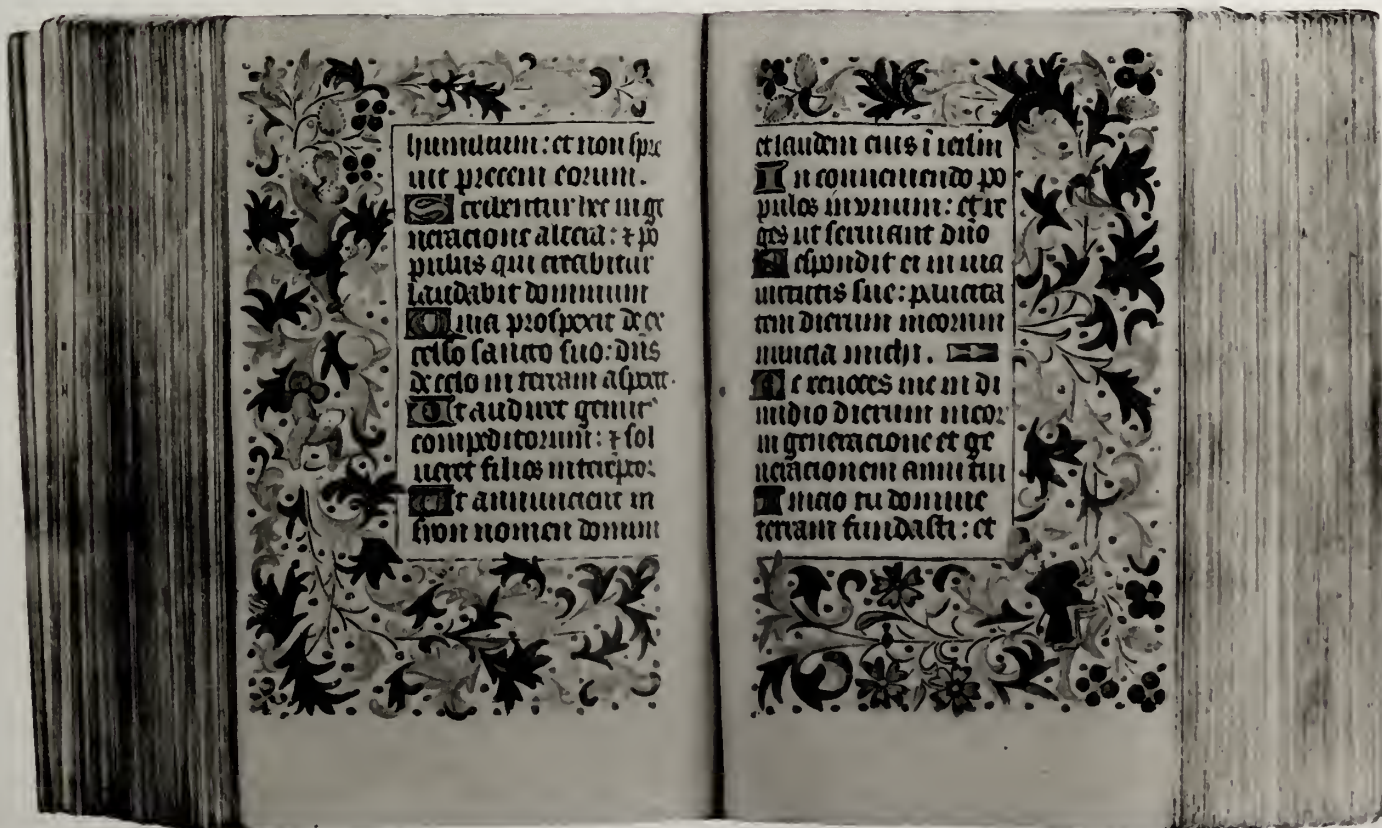 humilium: et non spre
uit precem eorum.
Scribentur hec in ge
neracione altera: ⁊ po
pulus qui creabitur
laudabit dominum
Quia prospexit de ex
celso sancto suo: dñs
de celo in terram aspexit.
Ut audiret gemit᷒
compeditorum: ⁊ sol
ueret filios interẽptor᷒
Ut annuncient in
syon nomen domini
et laudem eius ĩ ierĩm
In conueniendo po
pulos in vnum: et re
ges ut seruiant dño
Respondit ei in uia
uirtutis sue: paucita
tem dierum meorum
nuncia michi.
Ne reuoces me in di
midio dierum meor᷒
in generacione et ge
neracionem anni tui
Inicio tu domine
terram fundasti: et